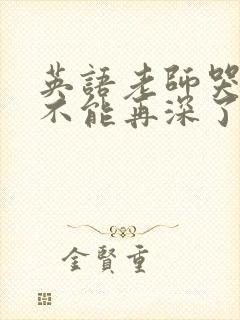 英語老師哭
不能再深了
金賢重